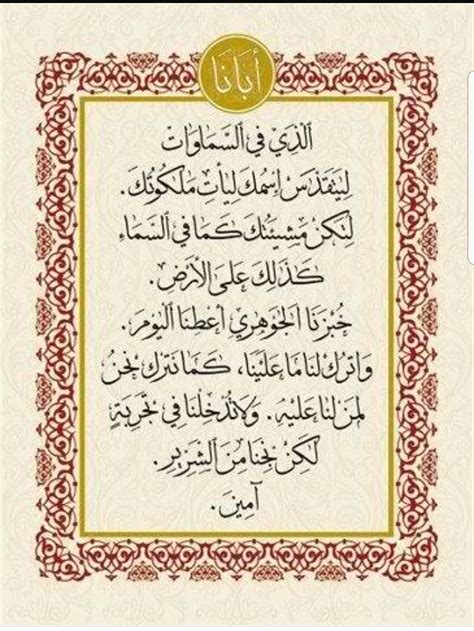 أَبَانَا
الَّذِي فِي السَّمَاوَاتِ
لِيَتَقَدَّسَ إِسْمُكَ لِيَأْتِ مَلَكُوتُكَ.
لِتَكُنْ مَشِيئَتُكَ كَمَا فِي السَّمَاءِ
كَذَلِكَ عَلَى الْأَرْضِ.
خُبْزَنَا الْجَوْهَرِي أَعْطِنَا الْيَوْمَ.
وَاتْرُكْ لَنَا مَا عَلَيْنَا، كَمَا نَتْرُكُ نَحْنُ
لِمَنْ لَنَا عَلَيْهِ. وَلَا تُدْخِلْنَا فِي تَجْرِبَةٍ
لَكِنْ نَجِّنَا مِنَ الشِّرِّيرِ.
آمِينَ.